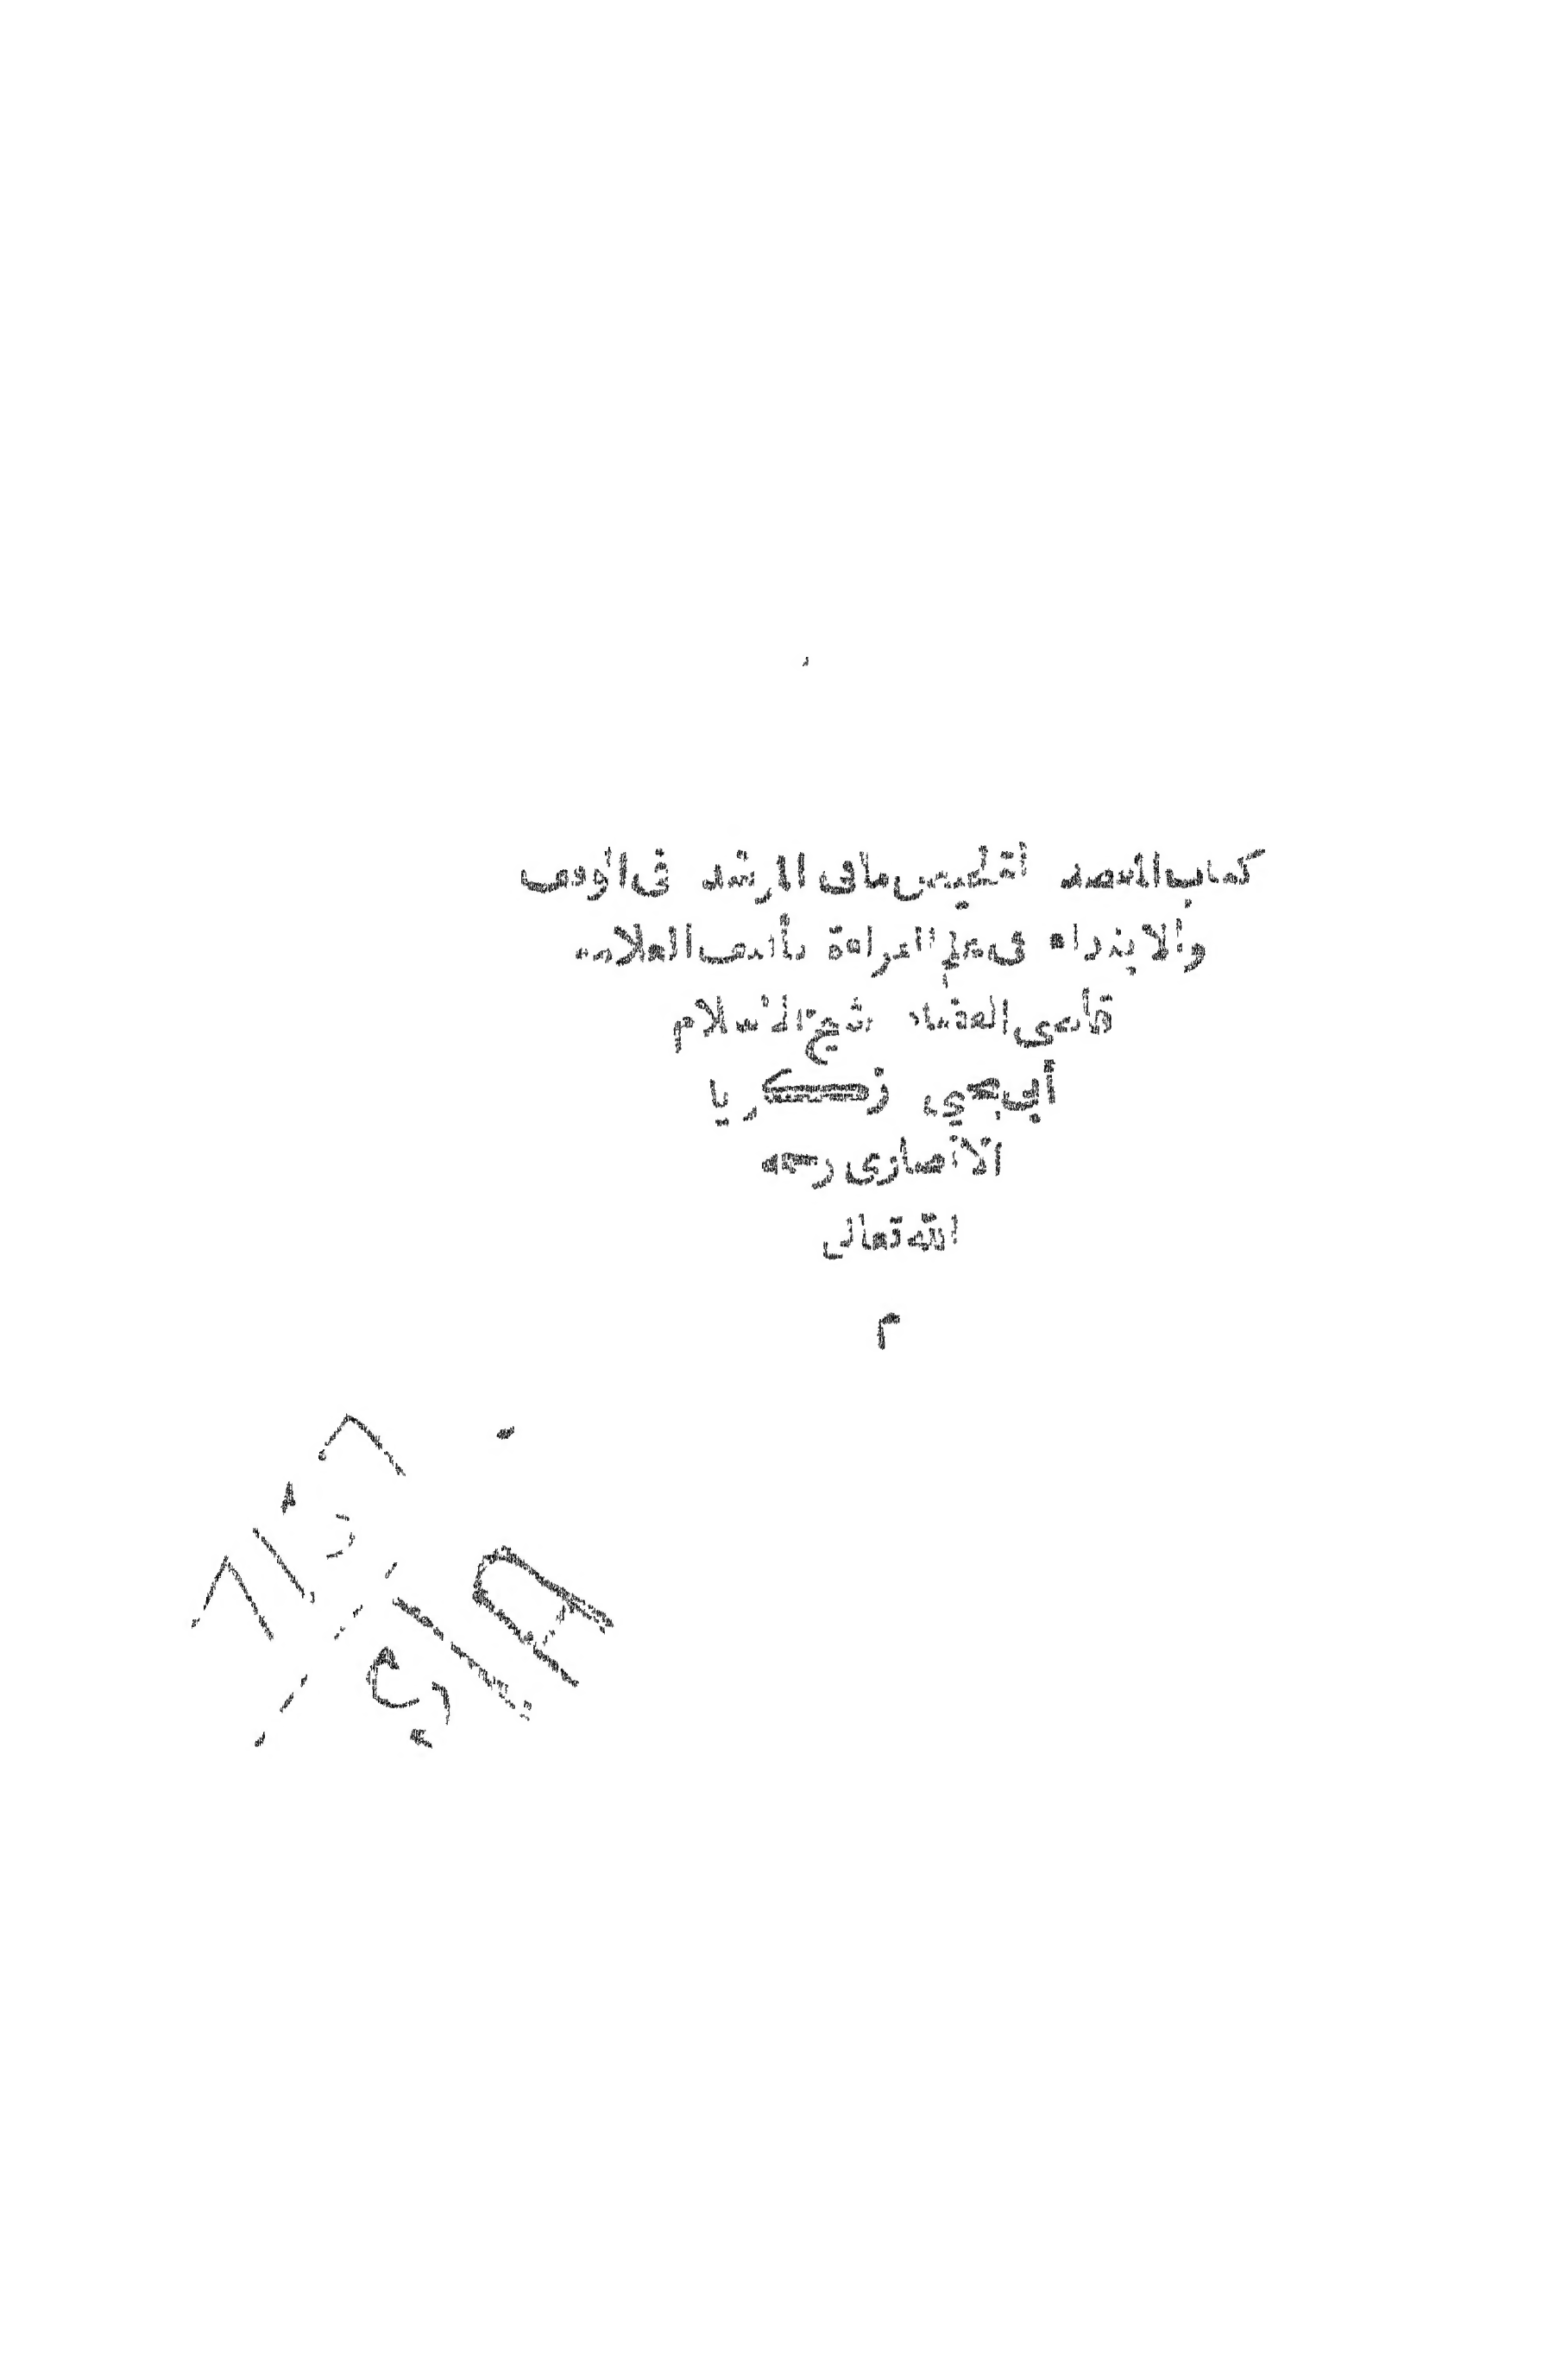 كتاب المقصد لتلخيص ما فى المرشد فى الوقف
والابتداء فى علم القراءة تأليف العلامة
قاضى القضاة شيخ الاسلام
أبي يحيي زكريا
الانصارى رحمه
الله تعالى
م